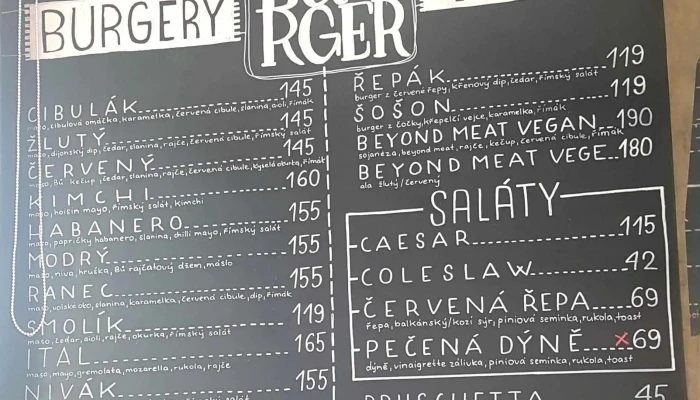 BURGERY
RGER
CIBULÁK 145
maso, cibulová omáčka, karamelka, červená cibule, slanina, aioli, římák
ŽLUTÝ 145
maso, dijonský dip, čedar, slanina, rajče, červená cibule, římský salát
ČERVENÝ 145
maso, BŮ kečup, čedar, slanina, rajče, červená cibule, kyselá okurka, římák
KIMCHI 160
maso, hoisin mayo, římský salát, kimchi
HABANERO 155
maso, papričky habanero, slanina, chilli mayo, římský salát
MODRÝ 155
maso, niva, hruška, BŮ rajčatový džem, máslo
RANEC 155
maso, volské oko, slanina, karamelka, červená cibule, dip, římák
SMOLÍK 119
maso, čedar, aioli, rajče, okurka, římský salát
ITAL 165
maso, mayo, gremolata, mozarella, rukola, rajče
NIVÁK 155
ŘEPÁK 119
burger z červené řepy, křenový dip, čedar, římský salát
ŠOŠON 119
burger z čočky, křepelčí vejce, karamelka, římák
BEYOND MEAT VEGAN 190
sojanéza, beyond meat, rajče, kečup, červená cibule, římák
BEYOND MEAT VEGE 180
ala žlutý/červený
SALÁTY
CAESAR 115
COLESLAW 42
ČERVENÁ ŘEPA 69
řepa, balkánský/kozí sýr, piniová semínka, rukola, toast
PEČENÁ DÝNĚ x69
dýně, vinaigrette zálivka, piniová semínka, rukola, toast
BRUSCHETTA 45